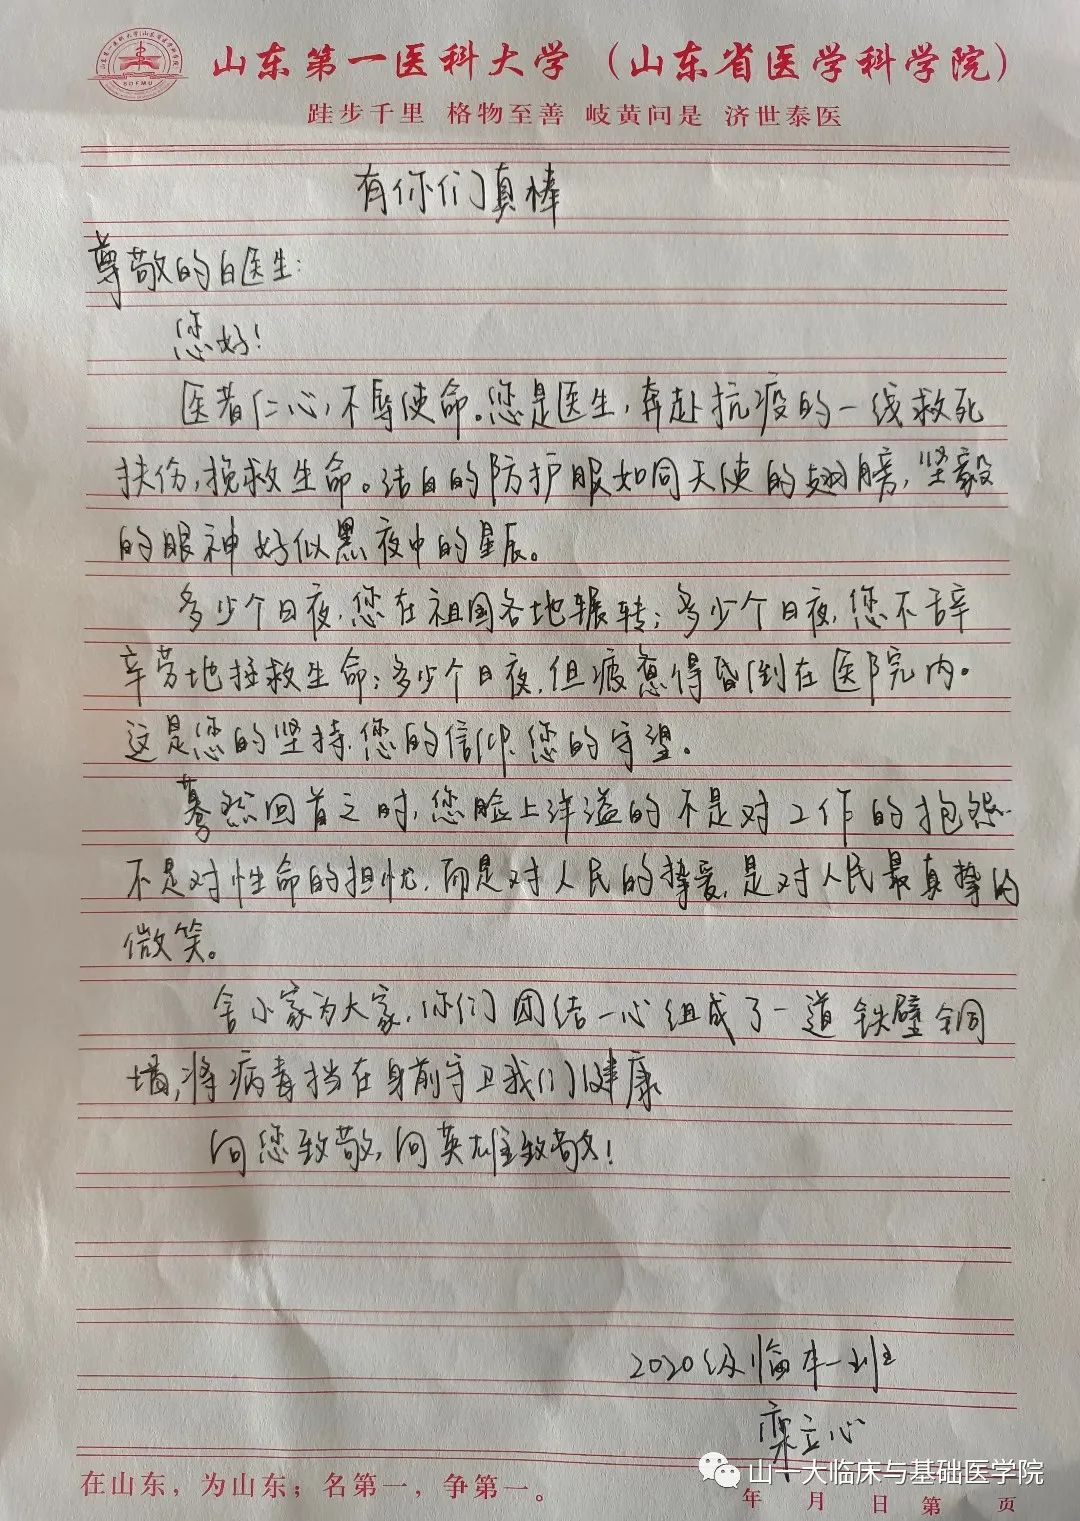 山东第一医科大学（山东省医学科学院）
SDFMU
跬步千里 格物至善 岐黄问是 济世泰医
有你们真棒
尊敬的白医生：
您好！
医者仁心，不辱使命。您是医生，奔赴抗疫的一线救死
扶伤，挽救生命。洁白的防护服如同天使的翅膀，坚毅
的眼神好似黑夜中的星辰。
多少个日夜，您在祖国各地辗转；多少个日夜，您不辞
辛劳地拯救生命；多少个日夜，但疲惫得昏倒在医院内。
这是您的坚持、您的信仰、您的守望。
蓦然回首之时，您脸上洋溢的不是对工作的抱怨
不是对性命的担忧，而是对人民的挚爱，是对人民最真挚的
微笑。
舍小家为大家，你们团结一心组成了一道铁壁铜
墙，将病毒挡在身前守卫我们健康
向您致敬，向英雄致敬！
2020级临本一班
栾立心
山一大临床与基础医学院
在山东，为山东；名第一，争第一。
年 月 日 第 页